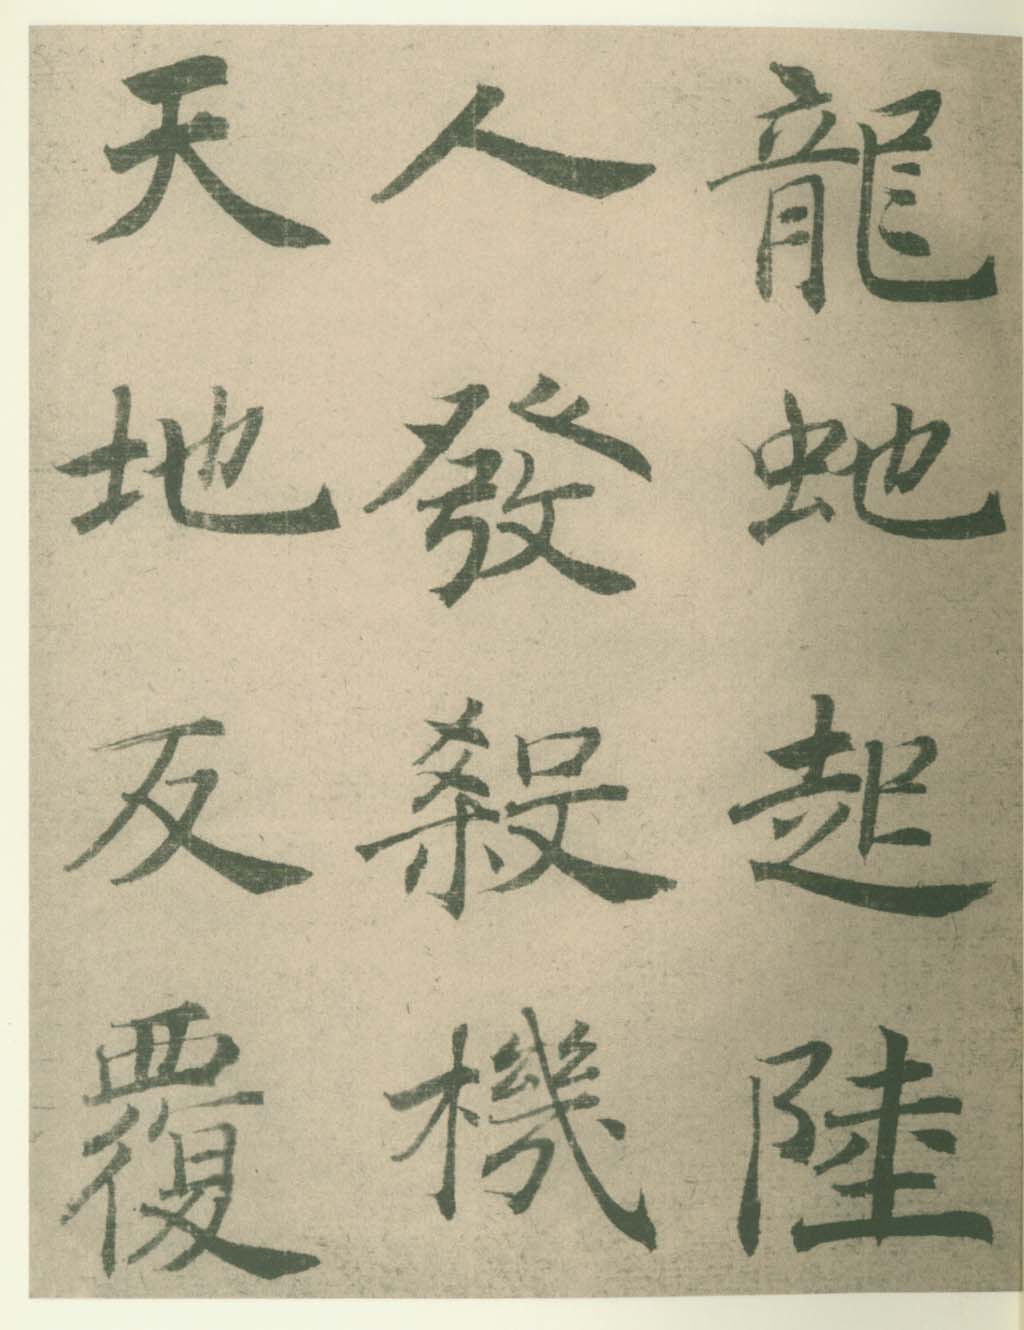 龍虵起陸
人發殺機
天地反覆